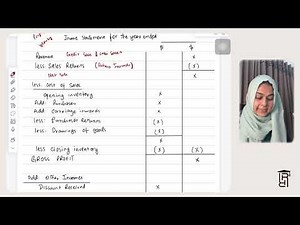 Income Statement for the year ended
$ $
Revenue (Credit Sales & Cash Sales) x
less: Sales Returns (Return Inwards) (x)
Net Sales x
less: Cost of Sales
Opening inventory x
Add: Purchases x
Add: Carriage inwards x
less: Purchases Returns (x)
less: Drawings of goods (x)
x
less: Closing inventory (x) (x)
GROSS PROFIT x
Add: Other Incomes
Discount Received x